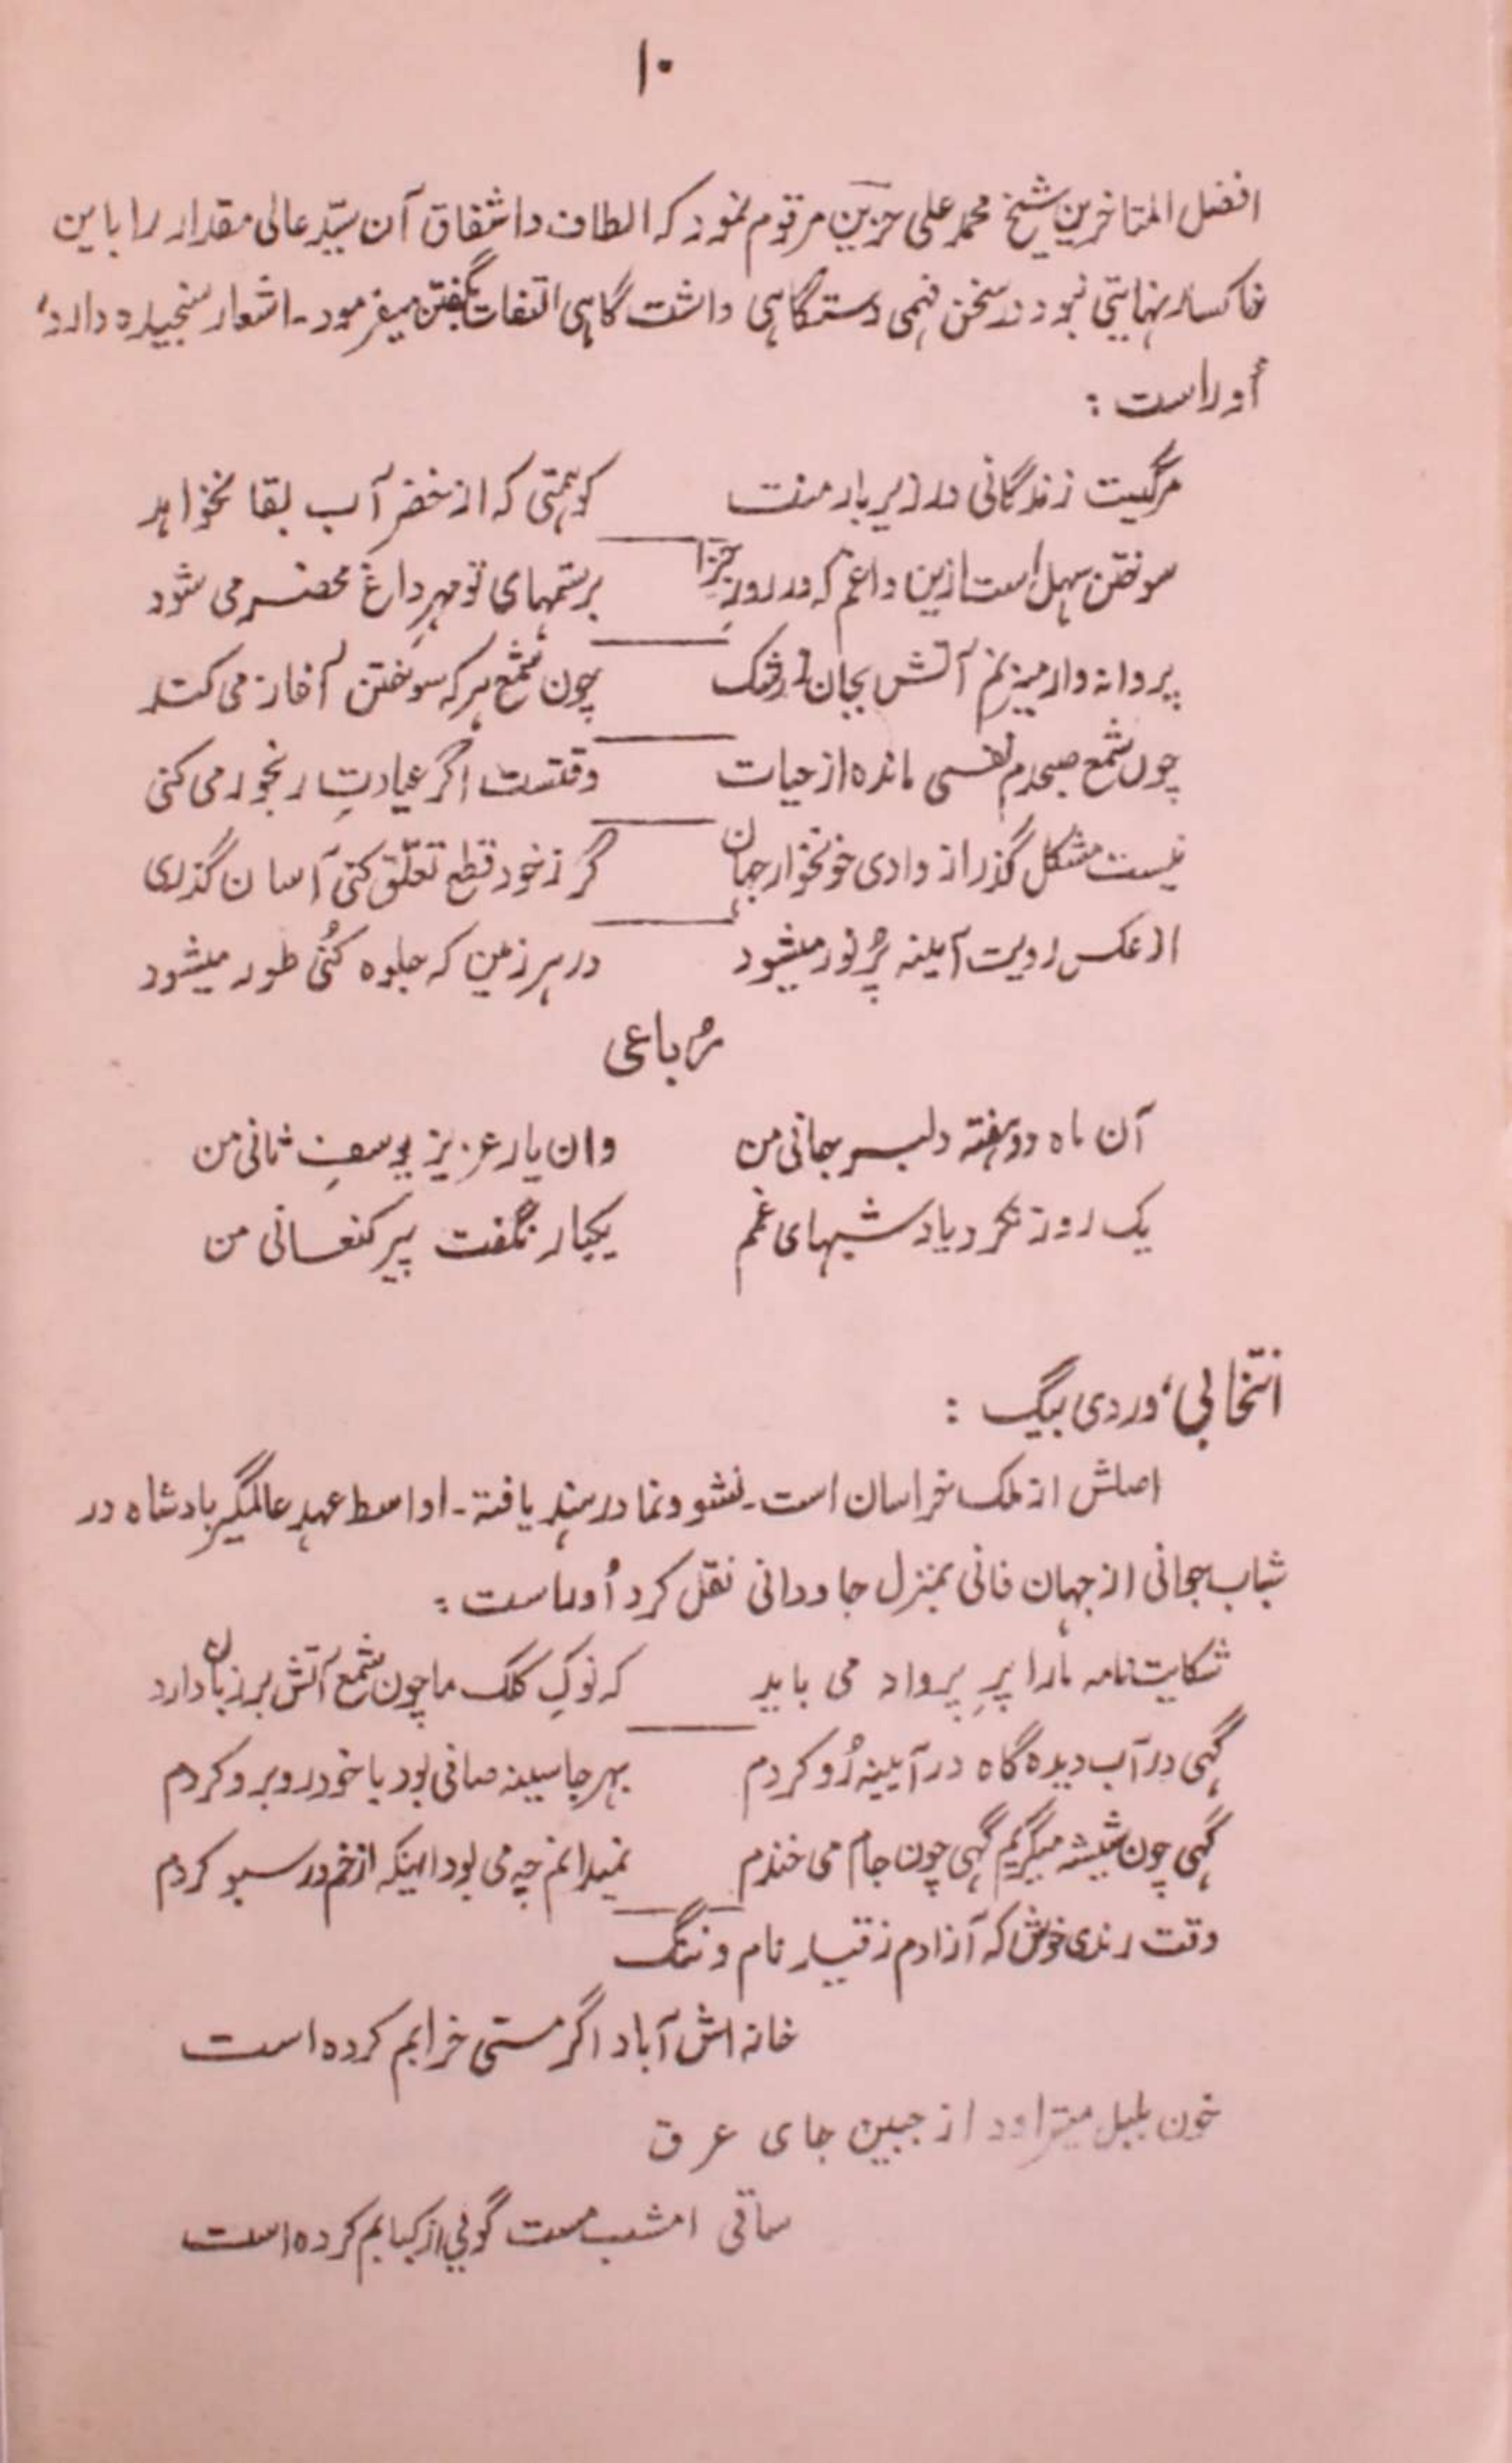 ۱۰
افضل المتاخرین شیخ محمد علی حزین مرقوم نمود که الطاف و اشفاق آن سیّد عالی مقدار را باین
خاکسار نهایتی نبود در سخن فهمی دستگاهی داشت گاهی التفات بگفتن میفرمود - اشعار سنجیده دارد،
اُوراست :
مرگیست زندگانی در زیر بار منت کو همتی که از خضر آب بقا نخواهد
سوختن سهل است ازین داغم که در روزِ جزا بر ستمهای تو مهرِ داغ محضر می شود
پروانه وار میزنم آتش بجان ز رشک چون شمع هر که سوختن آغاز می کند
چون شمع صبحدم نفسی مانده از حیات وقتست اگر عیادتِ رنجور می کنی
نیست مشکل گذر از وادی خونخوار جهان گر ز خود قطع تعلّق کنی آسان گذری
از عکس رویت آیینه پُر نور میشود در هر زمین که جلوه کنُی طور میشود
رُباعی
آن ماه دو هفته دلبر جانی من وان یار عزیز یوسفِ ثانی من
یک روز نکرد یاد شبهای غمم یکبار نگفت پیر کنعانی من
انتخابی، وردی بیگ :
اصلش از ملک خراسان است - نشو و نما در هند یافتة - اواسط عهد عالمگیر بادشاه در
شباب جوانی از جهان فانی بمنزل جاودانی نقل کرد اُوراست :
شکایت نامه مارا پرِ پرواز می باید که نوکِ کلک ما چون شمع آتش بر زبان دارد
گهی در آب دیده گاه در آیینه رُو کردم بهر جا سینه صافی بود با خود روبرو کردم
گهی چون شیشه میگریم گهی چون جام می خندم نمیدانم چه می بود اینکه از خم در سبو کردم
وقت رندی خوش که آزادم ز قید نام و ننگ
خانه اش آباد اگر مستی خرابم کرده است
خون بلبل میتراود از جبین جای عرق
ساقی امشب مست گویی از کبابم کرده است